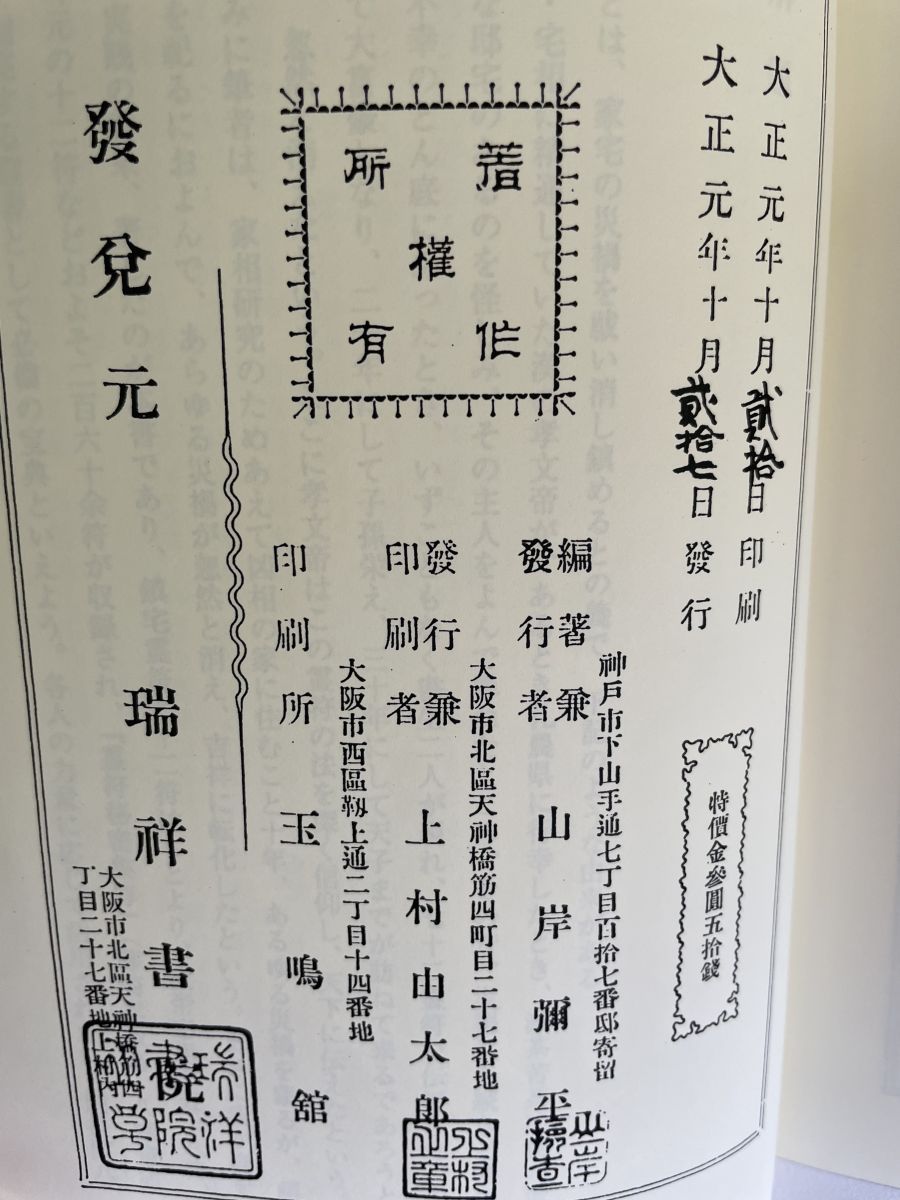 大正元年十月貳拾日印刷
大正元年十月貳拾七日發行
特價金參圓五拾錢
著作權所有
神戸市下山手通七丁目百拾七番邸寄留
編著兼發行者 山岸彌平
大阪市北區天神橋筋四町目二十七番地
發行兼印刷者 上村由太郎
大阪市西區靱上通二丁目十四番地
印刷所 玉鳴舘
發兌元 瑞祥書院
大阪市北區天神橋筋四
丁目二十七番地上村内